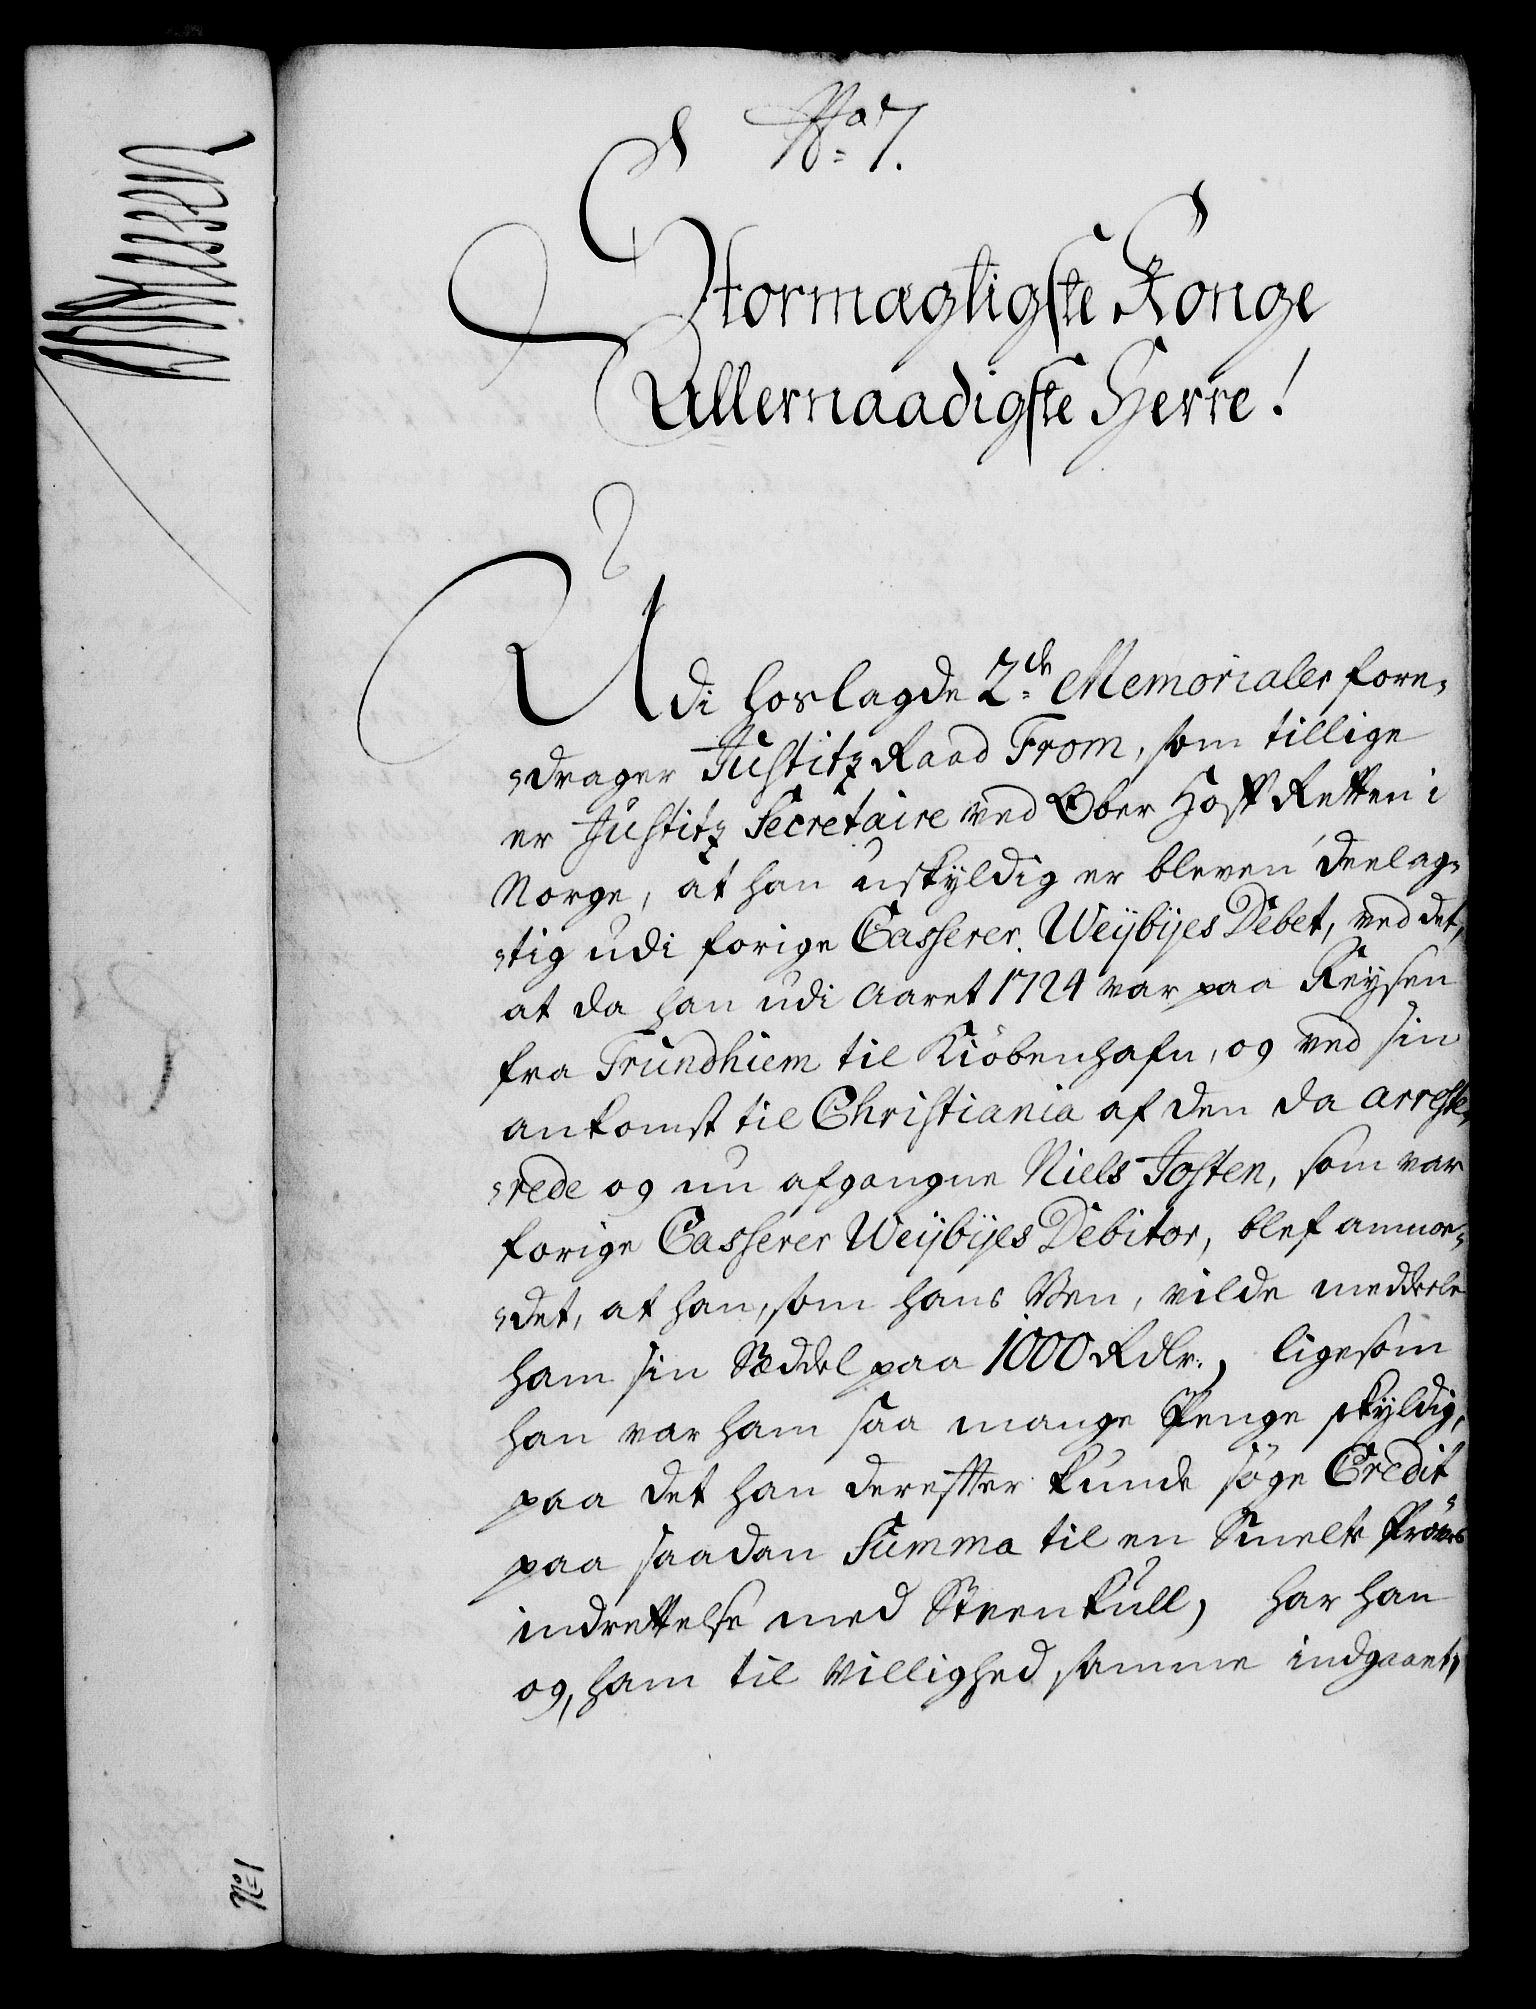 No 7.
Stormægtigste Konge
Allernaadigste Herre!
Udi hoslagde 2de Memorialer fore-
-drager Justitz Raad From, som tillige
er Justitz Secretaire ved Ober Hoff Retten i
Norge, at han uskyldig er bleven deelag-
-tig udi forige Casserer Weijbijes Debet, ved det,
at da han udi Aaret 1724 var paa Reysen
fra Trundhiem til Kiöbenhafn, og ved sin
ankomst til Christiania af den da arreste-
-rede og nu afgangne Niels Josten, som var
forige Casserer Weijbijes Debitor, blef anmo-
-det, at han, som hans Ven, vilde meddeele
ham sin Sæddel paa 1000 Rdlr., ligesom
han var ham saa mange Penge skyldig,
paa det han derefter kunde söge Credit
paa saadan Summa til en Smelte Pröves
indrettelse med Steenkull, har han
og, ham til Villighed, samme indgaaet,
No 1